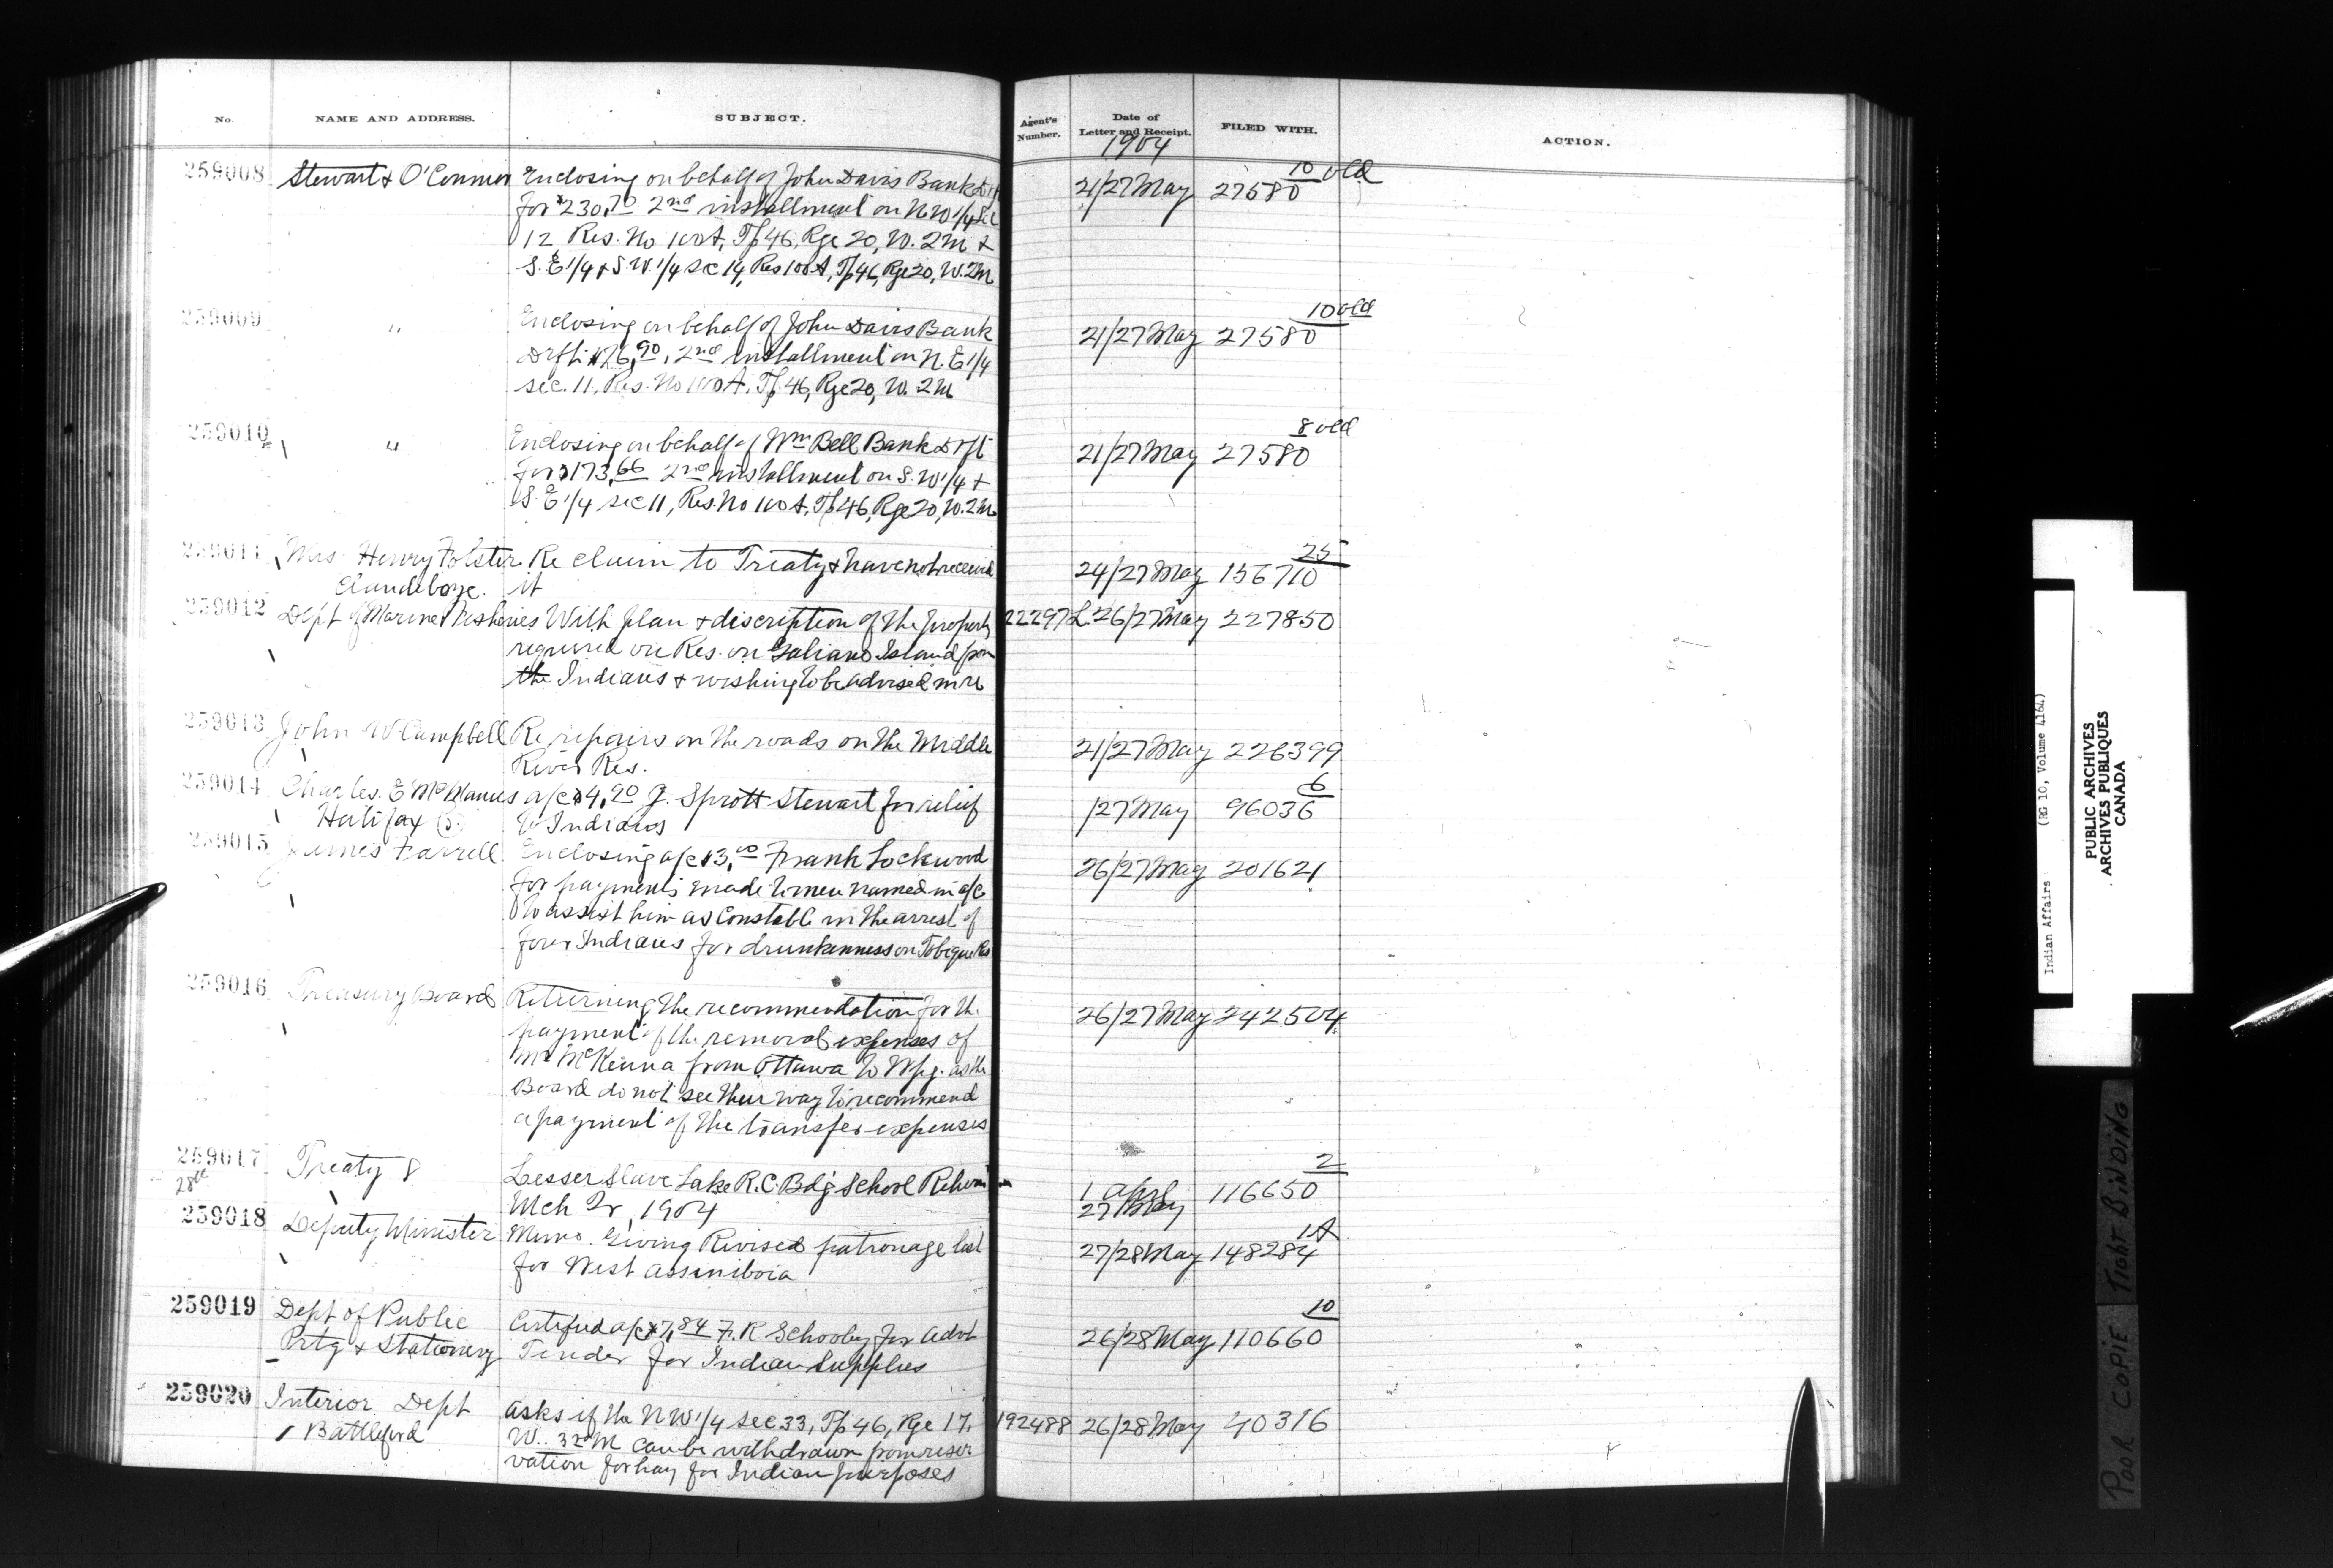 No. NAME AND ADDRESS. SUBJECT. Agent's Number. Date of Letter and Receipt. FILED WITH. ACTION.
1904
259008 Stewart & O'Connor Enclosing on behalf of John Davis Bank Dft 21/27 May 27580 10 old
for $230.70 2nd installment on N.W 1/4 Sec
12 Res. No 100A, Tp 46, Rge 20, W. 2M &
S.E 1/4 & S.W. 1/4 sec 14, Res 100A, Tp 46, Rge 20, W. 2M
259009 " Enclosing on behalf of John Davis Bank 21/27 May 27580 10 old
Drft $76.90, 2nd installment on N.E 1/4
sec. 11, Res. No 100A, Tp 46, Rge 20, W. 2M
259010 " Enclosing on behalf of Wm Bell Bank Drft 21/27 May 27580 8 old
for $173.66 2nd installment on S.W 1/4 &
S.E 1/4 sec 11, Res. No 100A, Tp 46, Rge 20, W. 2M
259011 Mrs Henry Folster Re claim to Treaty & have not received 24/27 May 156710 25
Clandeboye. it
259012 Dept of Marine & Fisheries With plan & discription of the property 22297 L. 26/27 May 227850
required on Res. on Galiano Island from
the Indians & wishing to be advised in re
259013 John W Campbell Re repairs on the roads on the Middle 21/27 May 226399
River Res.
259014 Charles. E McManus a/c $4.20 J. Sprott Stewart for relief /27 May 96036 6
Halifax to Indians
259015 James Farrell Enclosing a/c $3.00 Frank Lockwood 26/27 May 201621
for payments made to men named in a/c
to assist him as Constable in the arrest of
four Indians for drunkenness on Tobique Res
259016 Treasury Board Returning the recommendation for the 26/27 May 242504
payment of the removal expenses of
Mr McKenna from Ottawa to Wpg. as the
Board do not see their way to recommend
a payment of the transfer expenses
259017 Treaty 8 Lesser Slave Lake R.C. Bdg School Return 1 April 116650 2
28th Mch Qr, 1904 27 May
259018 Deputy Minister Memo. Giving Revised patronage list 27/28 May 148284 1A
for West Assiniboia
259019 Dept of Public Certified a/c $7.84 F. R Schooley for advt 26/28 May 110660 10
Prtg & Stationery Tender for Indian Supplies
259020 Interior Dept asks if the N W 1/4 sec 33, Tp 46, Rge 17, 192488 26/28 May 40316
Battleford W. 3rd M can be withdrawn from reser
vation for hay for Indian purposes
Indian Affairs (RG 10, Volume 4164)
PUBLIC ARCHIVES
ARCHIVES PUBLIQUES
CANADA
POOR COPIE TIGHT BINDING